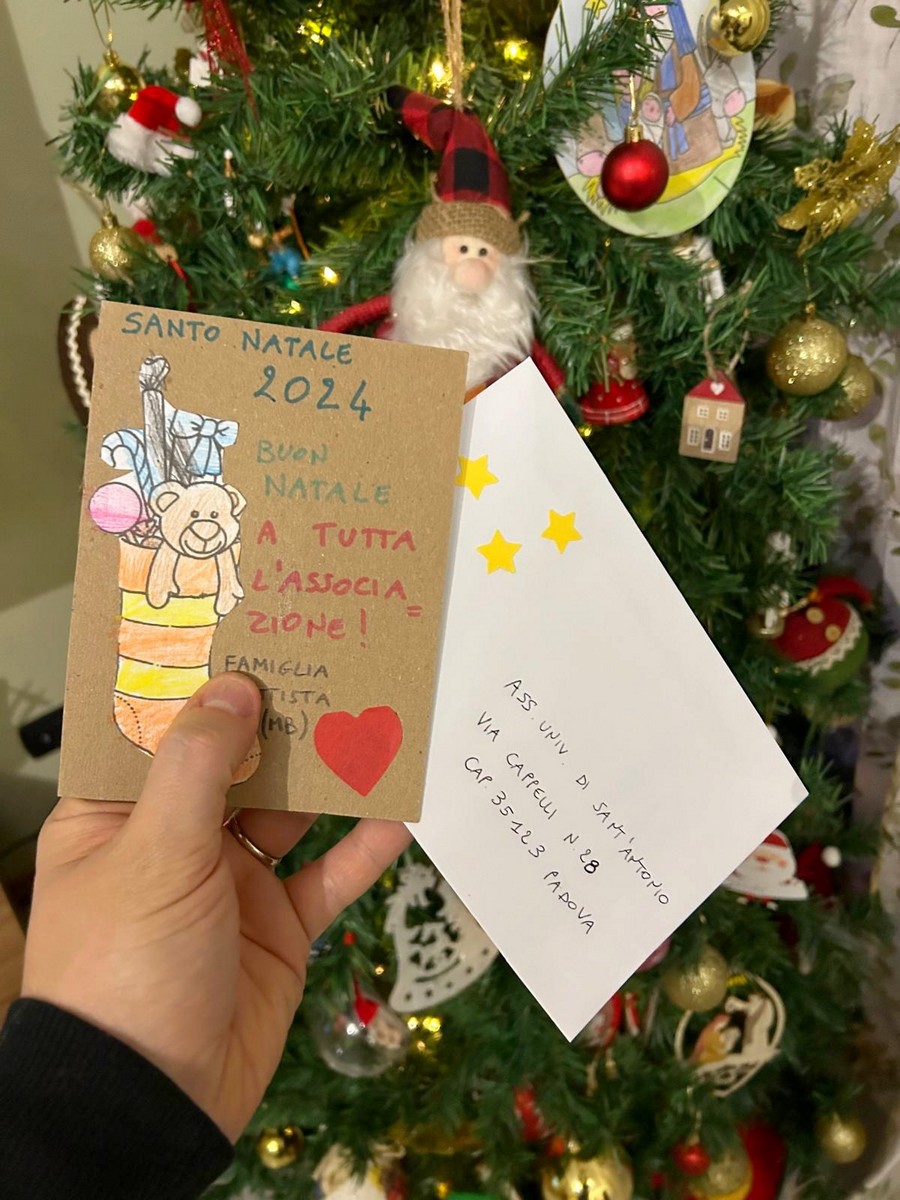 SANTO NATALE
2024
BUON
NATALE
A TUTTA
L'ASSOCIA=
ZIONE!
FAMIGLIA
(MB)
ASS. UNIV. DI SANT'ANTONIO
VIA CAPPELLI N.28
CAP. 35123 PADOVA